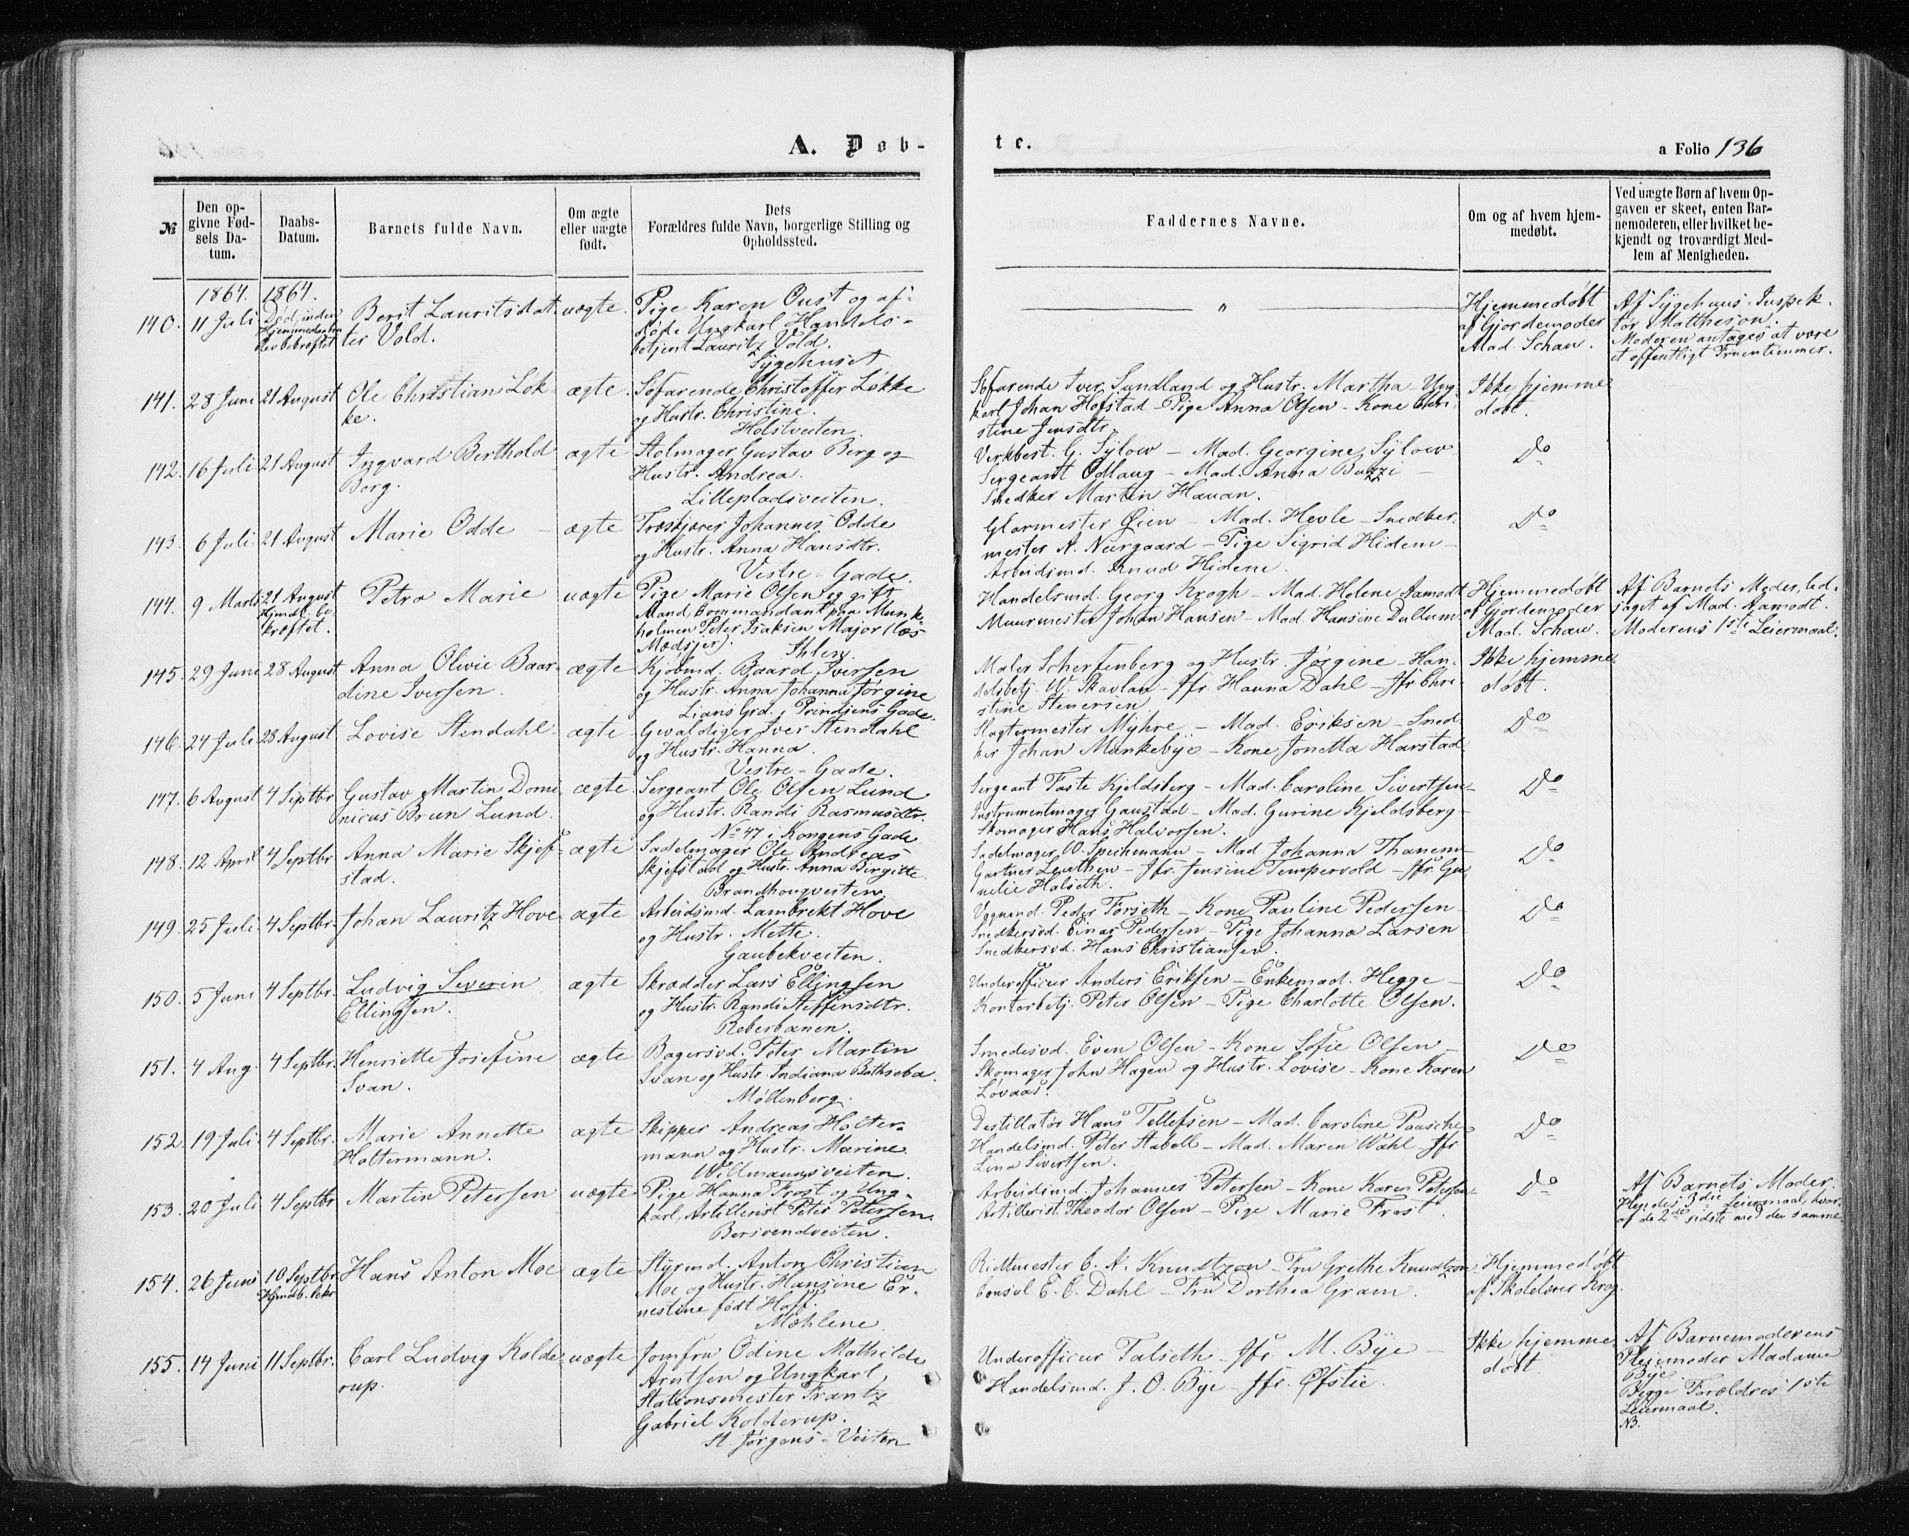 A. Døb-
te.
a Folio 136
№
Den op-
givne Fød-
sels Da-
tum.
Daabs-
Datum.
Barnets fulde Navn.
Om ægte
eller uægte
født.
Dets
Forældres fulde Navn, borgerlige Stilling og
Opholdssted.
Faddernes Navne.
Om og af hvem hjem-
medøbt.
Ved uægte Børn af hvem Op-
gaven er skeet, enten Bar-
nemoderen, eller hvilket be-
kjendt og troværdigt Med-
lem af Menigheden.
1864. 1864.
140. 11 Juli
Død, inden
Hjemmedøben
blev bekræftet
Berit Lauritsdat-
ter Vold.
uægte.
Pige Karen Oust og af-
døde Ungkarl Handels-
betjent Lauritz Vold.
Sygehuset
"
Hjemmedøbt
af Gjordemoder
Mad. Schau.
Af Sygehuus-Inspek-
tør Mattheson.
Moderen antages at være
et offentligt Fruentimmer.
141. 28 Juni 21 August
Ole Christian Løk-
ke.
ægte.
Søfarende Christoffer Løkke
og Hustr. Christine.
Holstveiten.
Søfarende Iver Sundland og Hustr. Martha - Ung-
karl Johan Hofstad - Pige Anna Olsen - Kone Chri-
stine Jensdtr.
Ikke hjemme
døbt.
142. 16 Juli 21 August
Ingvard Berthold
Berg.
ægte
Stolmager Gustav Berg og
Hustr. Andrea.
Lillepladsveiten.
Verkbest. G. Sylow - Mad. Georgine Sylow
Sergeant Odlaug - Mad. Anna Buzzi -
Snedker Martin Hauan.
Do
143. 6 Juli 21 August
Marie Odde -
ægte
Træskjærer Johannes Odde
og Hustr. Anna Hansdtr.
Vestre-Gade.
Glarmester Øien - Mad. Hevle - Snedker-
mester N. Neergaard - Pige Sigrid Hidem -
Arbeidsmd. Knud Hidene.
Do
144. 9 Marts 21 August
Hjmdb. be-
kræftet.
Petra Marie
uægte
Pige Marie Olsen og gift
Mand Commandant paa Munk-
holmen Peter Isaksen Major (Læs
Mædsjer).
Ihlen.
Handelsmd. Georg Krogh - Mad. Helene Aamodt
Muurmester Johan Hansen - Mad. Hansine Dullum
Hjemmedøbt
af Gjordemoder
Mad. Schau.
Af Barnets Moder, led-
saget af Mad. Aamodt.
Moderens 1ste Leiermaal.
145. 29 Juni 28 August
Anna Olivie Baar-
dine Iversen.
ægte
Kjøbmd. Baard Iversen
og Hustr. Anna Johanna Jørgine
Lians Grd. i Prindsens Gade.
Maler Scherfenberg og Hustr. Jørgine - Han-
delsbetj. W. Skavlan - Jfr Hanna Dahl - Jfr. Chri-
stine Stenersen.
Ikke hjemme
døbt.
146. 24 Juli 28 August
Lovise Stendahl.
ægte
Gevaldiger Iver Stendahl
og Hustr. Hanna.
Vestre-Gade.
Slagtermester Myhre - Mad. Eriksen - Sned-
ker Johan Munkebye - Kone Jonetta Harstad
Do
147. 6 August 4 Septbr
Gustav Martin Domi-
nicus Brun Lund.
ægte
Sergeant Ole Olsen Lund
og Hustr. Randi Rasmusdtr.
No 47 i Kongens Gade
Sergeant Taste Kjeldsberg - Mad. Caroline Sivertsen-
Instrumentmager Gaustad - Mad. Gurine Kjeldsberg -
Skomager Hans Halvorsen.
Do
148. 12 April 4 Septbr
Anna Marie Skjef-
stad.
ægte
Sadelmager Ole Andreas
Skjefstad og Hustr. Anna Birgitte.
Brandhougveiten
Sadelmager W. Speichmann - Mad Johanna Thanem -
Gartner Leuthen - Jfr. Jensine Tempervold - Jfr. Gu-
nelie Halseth.
Do
149. 25 Juli 4 Septbr.
Johan Lauritz Hove
ægte
Arbeidsmd. Lambrekt Hove
og Hustr. Mette.
Gaubekveiten.
Vognmd. Peder Forseth - Kone Pauline Pedersen -
Snedkersvd. Einar Pedersen - Pige Johanna Larsen
Snedkersvd. Hans Christiansen.
Do
150. 5 Juni 4 Septbr.
Ludvig Severin
Ellingsen.
ægte
Skrædder Lars Ellingsen
og Hustr. Randi Steffensdtr.
Reberbanen.
Underofficer Anders Eriksen - Enkemad. Hegge -
Kontorbetj. Peter Olsen - Pige Charlotte Olsen.
Do
151. 4 Aug. 4 Septbr.
Henriette Josefine
Svan.
ægte
Bagersvd. Peter Martin
Svan og Hustr. Indiana Bathseba.
Møllenberg.
Smedesvd. Even Olsen - Kone Sofie Olsen -
Skomager John Hagen og Hustr. Lovise - Kone Karen
Løvaas.
Do
152. 19 Juli 4 Septbr.
Marie Annette
Holtermann.
ægte
Skipper Andreas Holter-
mann og Hustr. Marine.
Willmannsveiten.
Destillatør Hans Tellefsen - Mad. Caroline Paasche
Handelsmd. Peter Stabell - Mad. Maren Wahl - Jfr
Lina Sivertsen.
Do
153. 20 Juli 4 Septbr
Martin Petersen
uægte
Pige Hanna Frost og Ung-
karl, Artillerist Peter Petersen.
Bersvendveiten.
Arbeidsmd. Johannes Petersen - Kone Karen Petersen-
Artillerist Theodor Olsen - Pige Marie Frost.
Do
Af Barnets Moder.
Hendes 3die Leiermaal, hvor-
af de 2de sidste med den samme
154. 26 Juni 10 Septbr
Hjmdb. bekr
Hans Anton Moe
ægte
Styrmd. Anton Christian
Moe og Hustr. Hansine Er-
nestine født Hoff.
Møhlene.
Ritmester C. A. Knudtzon - Fru Grethe Knudtzon
Consul E. C. Dahl - Fru Dorthea Gram.
Hjemmedøbt
af Skolelærer Krog.
155. 14 Juni 11 Septbr.
Carl Ludvig Kolde-
rup.
uægte
Jomfru Odine Mathilde
Arntsen og Ungkarl,
Stationsmester Frantz
Gabriel Kolderup.
St. Jørgens-Veiten
Underofficer Talseth - Jfr M. Bye -
Handelsmd. J. O. Bye - Jfr. Øfstie.
Ikke hjemme
døbt.
Af Barnemoderens
Pleiemoder Madame
Bye
Begge Forældres 1ste
Leiermaal.
NB.